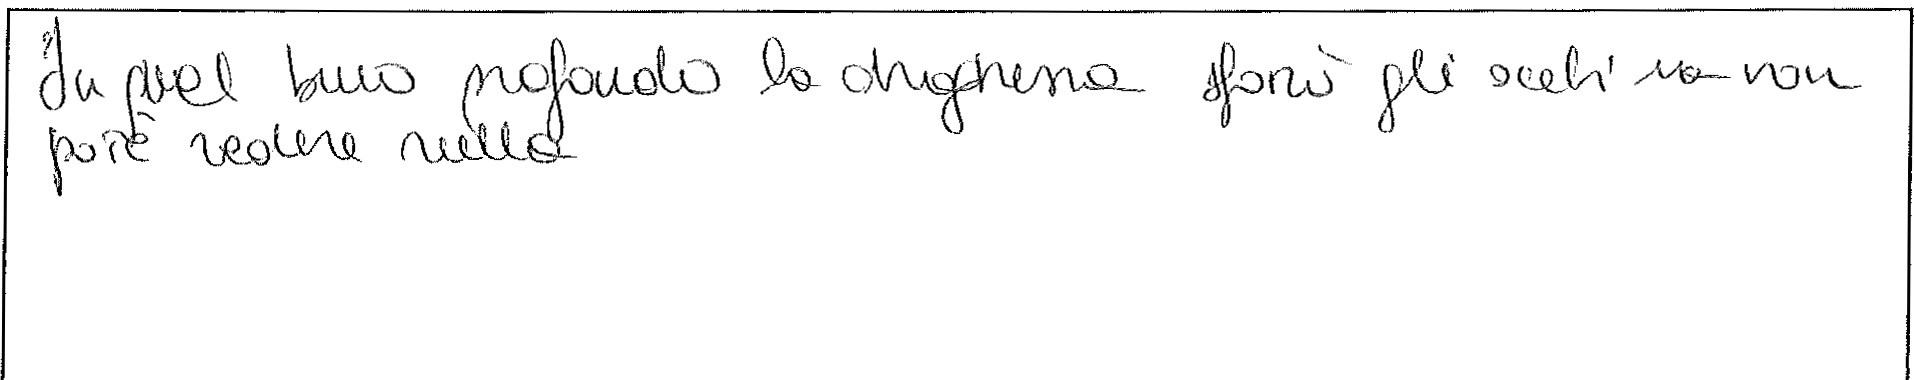 In quel buio profondo la drughessa sforzò gli occhi ma non
potè vedere nulla